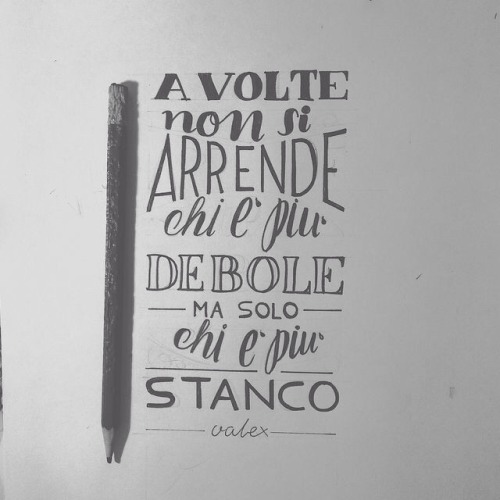 A VOLTE
non si
ARRENDE
chi e' piu'
DEBOLE
MA SOLO
chi e' piu'
STANCO
valex